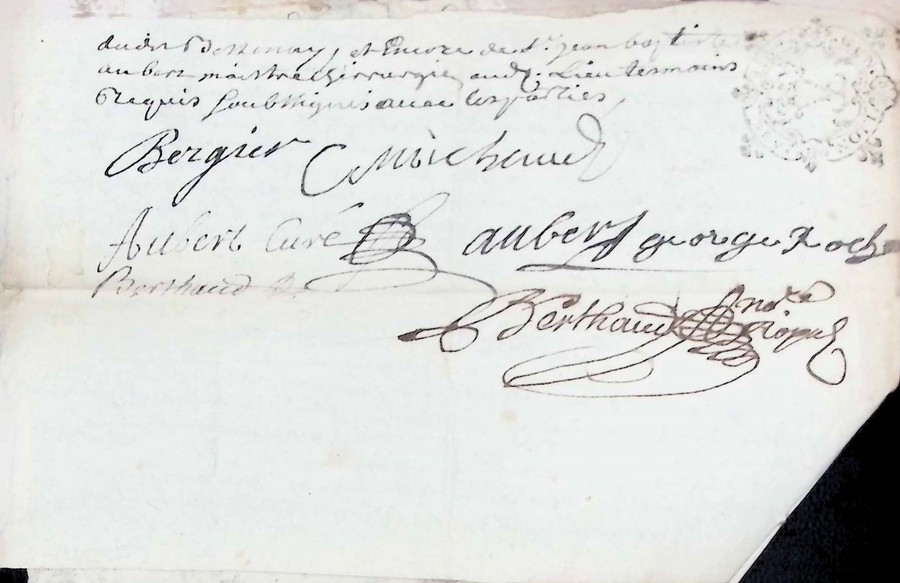 dudit Bessenay, et encore de Sr. jean baptiste
aubert maistre chirurgien aud. Lieu temoins
Requis soubsignes avec les parties
Bergier Michaud
Aubert Curé aubert george Roche
Berthaud
Berthaud nore Royal